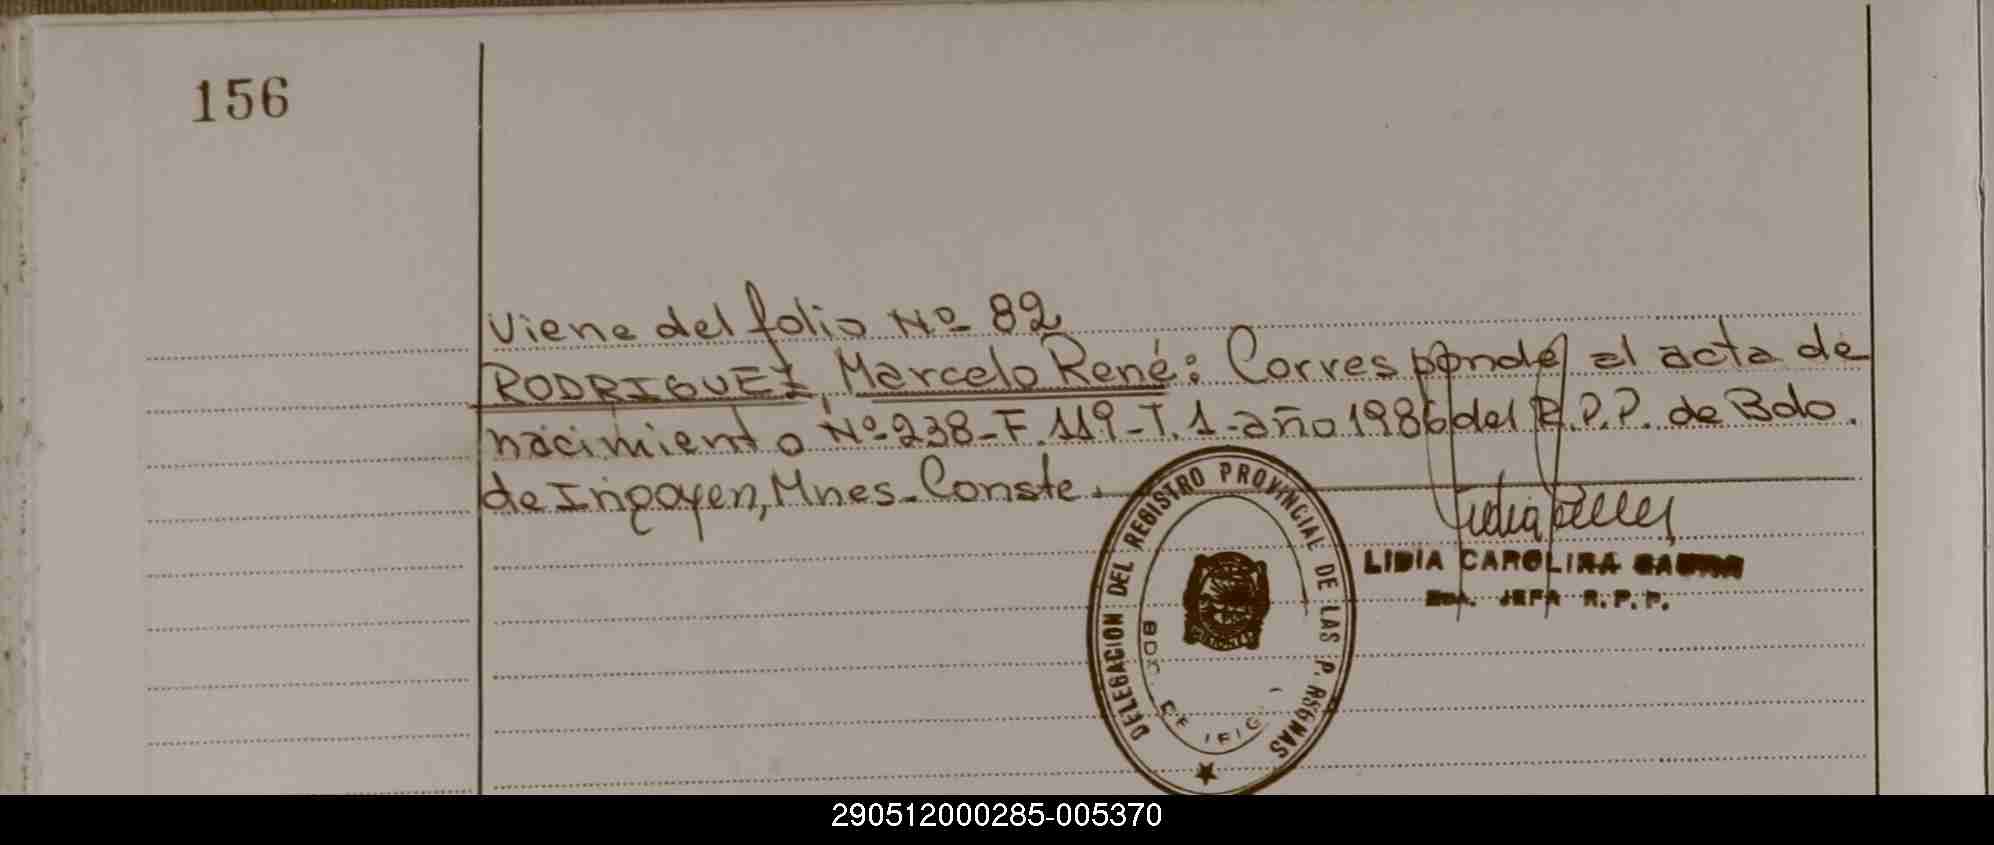 156
Viene del folio Nº 82
RODRIGUEZ, Marcelo René: Corresponde al acta de
nacimiento Nº 238-F.119-T.1-año 1986 del R.P.P. de Bdo.
de Irigoyen, Mnes. Conste.
DELEGACION DEL REGISTRO PROVINCIAL DE LAS P RSONAS
LIDIA CAROLINA
JEFA R.P.P.
290512000285-005370